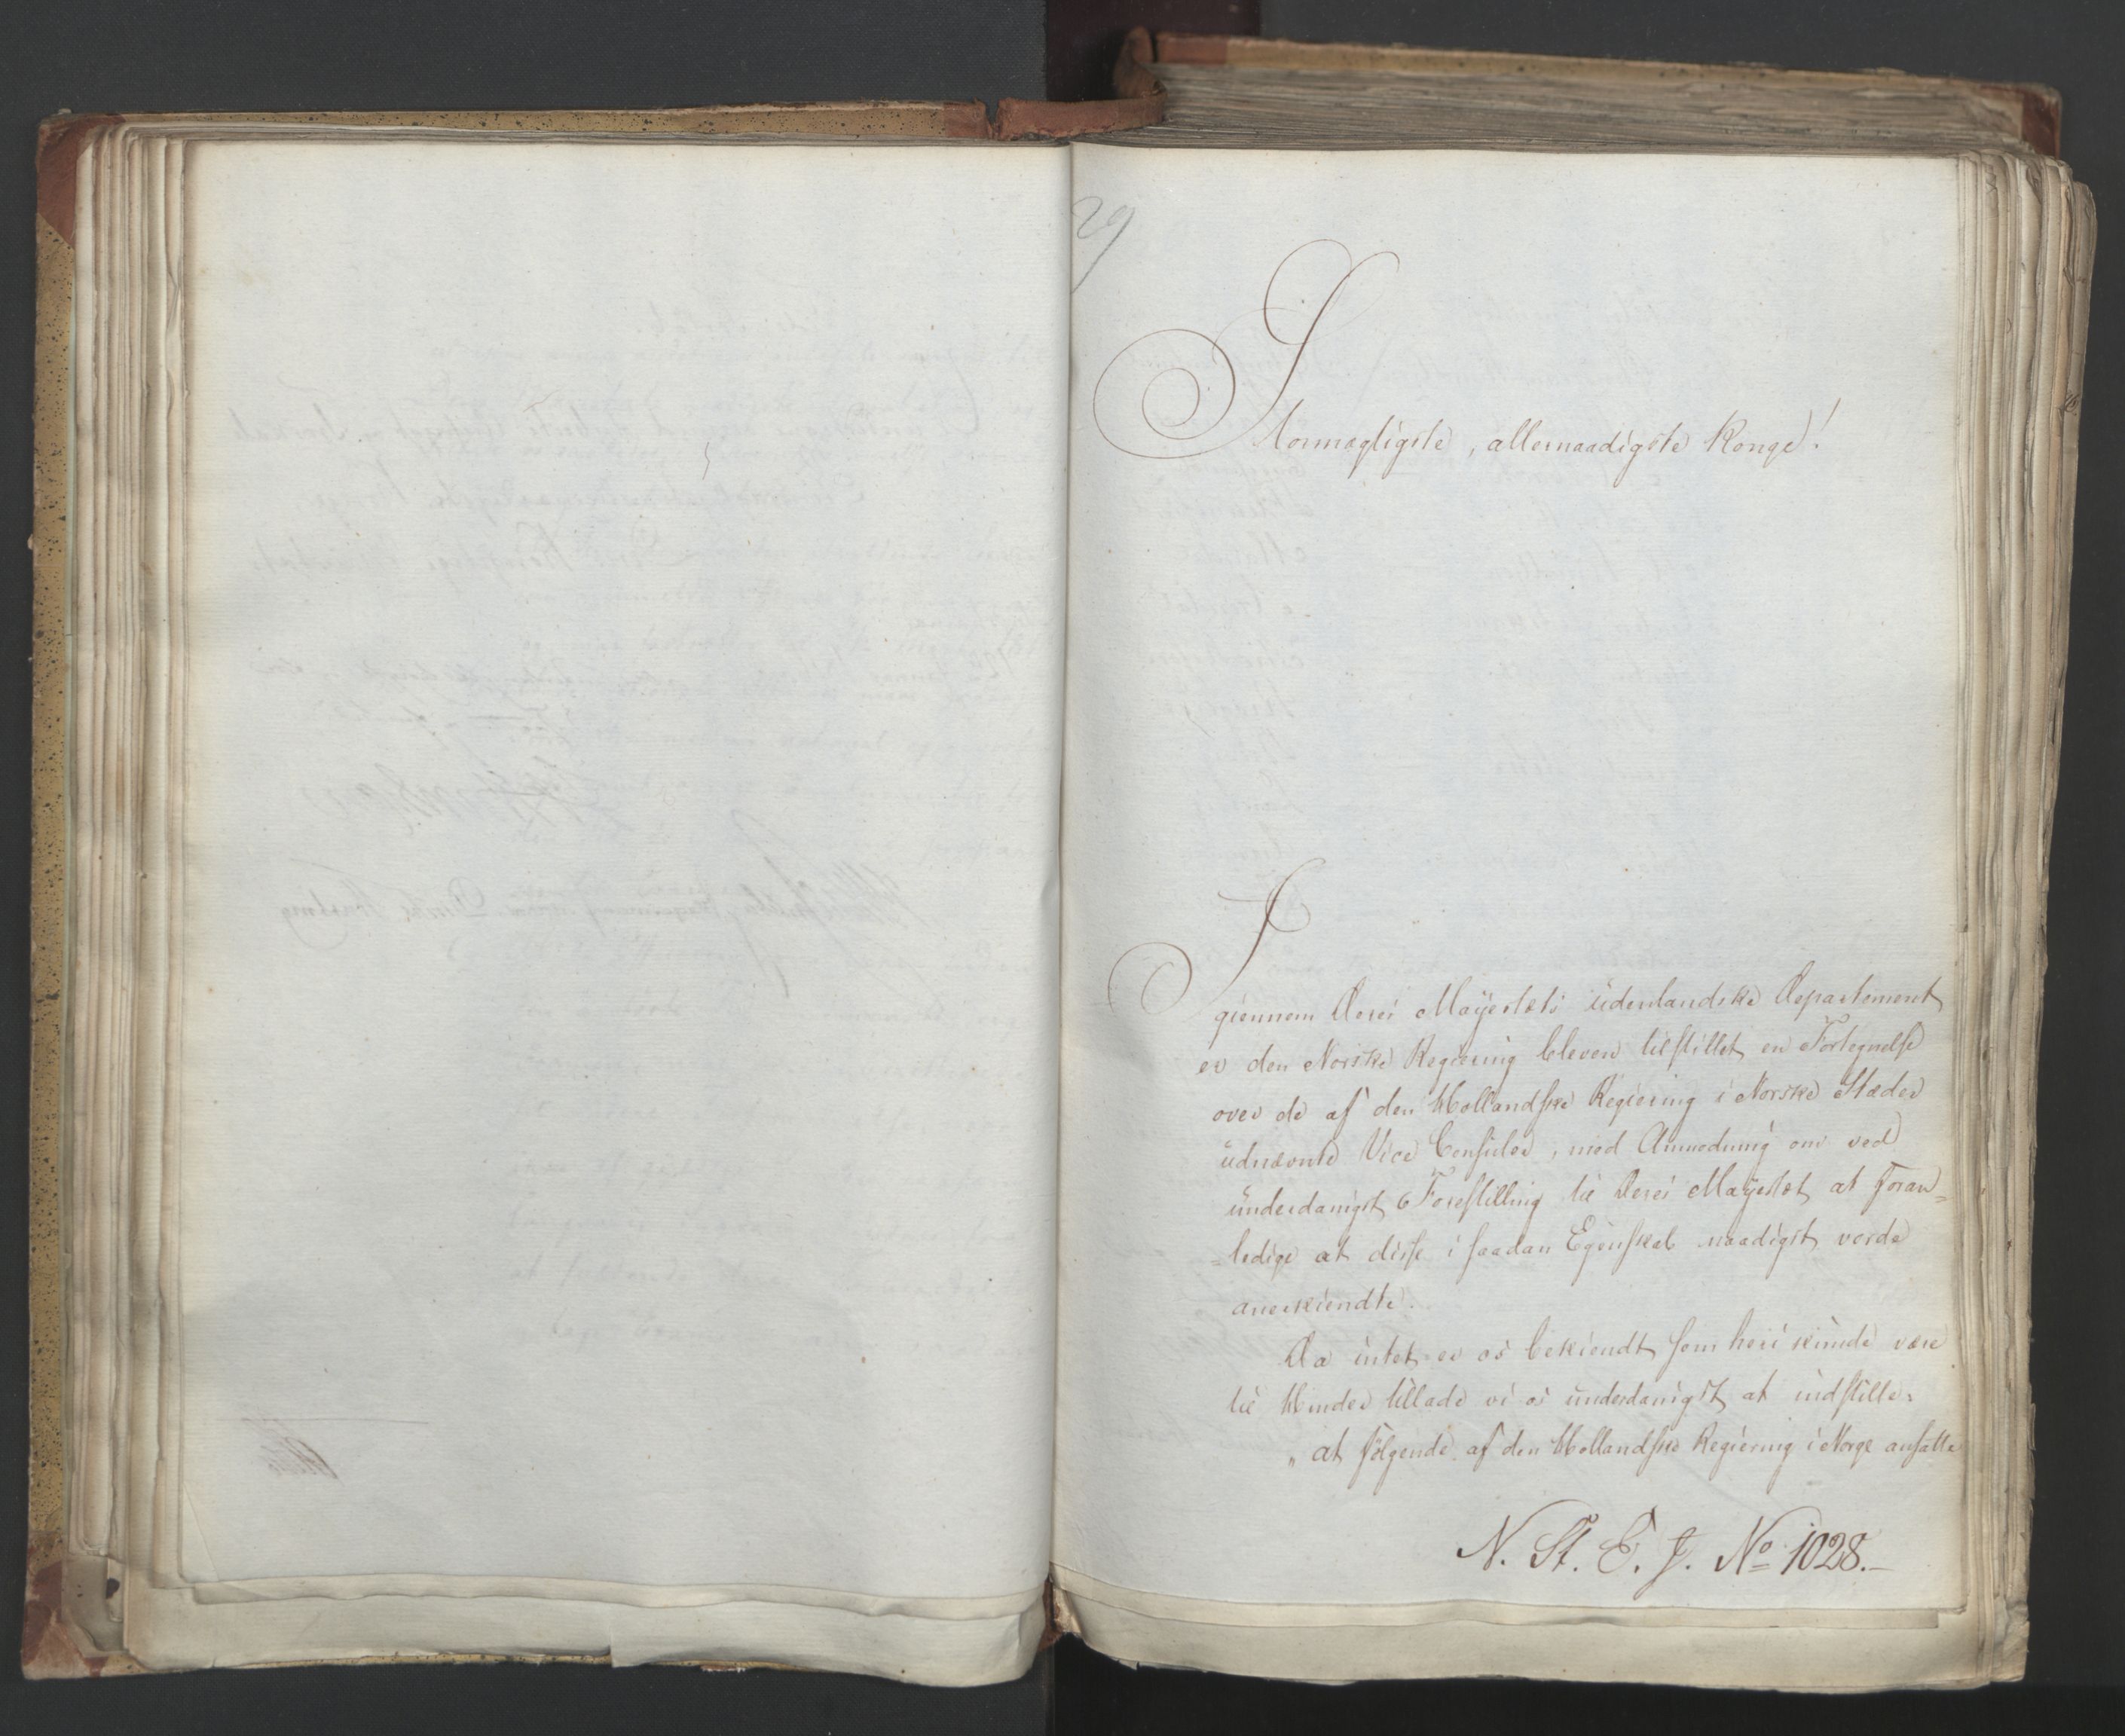 29
Stormægtigste, allernaadigste Konge!
Igiennem Deres Mayestæts udenlandske Departement
er den Norske Regiering bleven tilstillet en Fortegnelse
over de af den Hollandske Regiering i Norske Stæder
udnævnte Vice Consuler, med Anmodning om ved
underdanigst Forestilling til Deres Mayestæt at foran=
=ledige at disse i saadan Egenskab naadigst vorde
anerkiendte.
Da intet er os bekiendt som heri kunde være
til Hinder tillade vi os underdanigst at indstille:
„at følgende af den Hollandske Regiering i Norge ansatte
N. St. E. J. No 1028.-